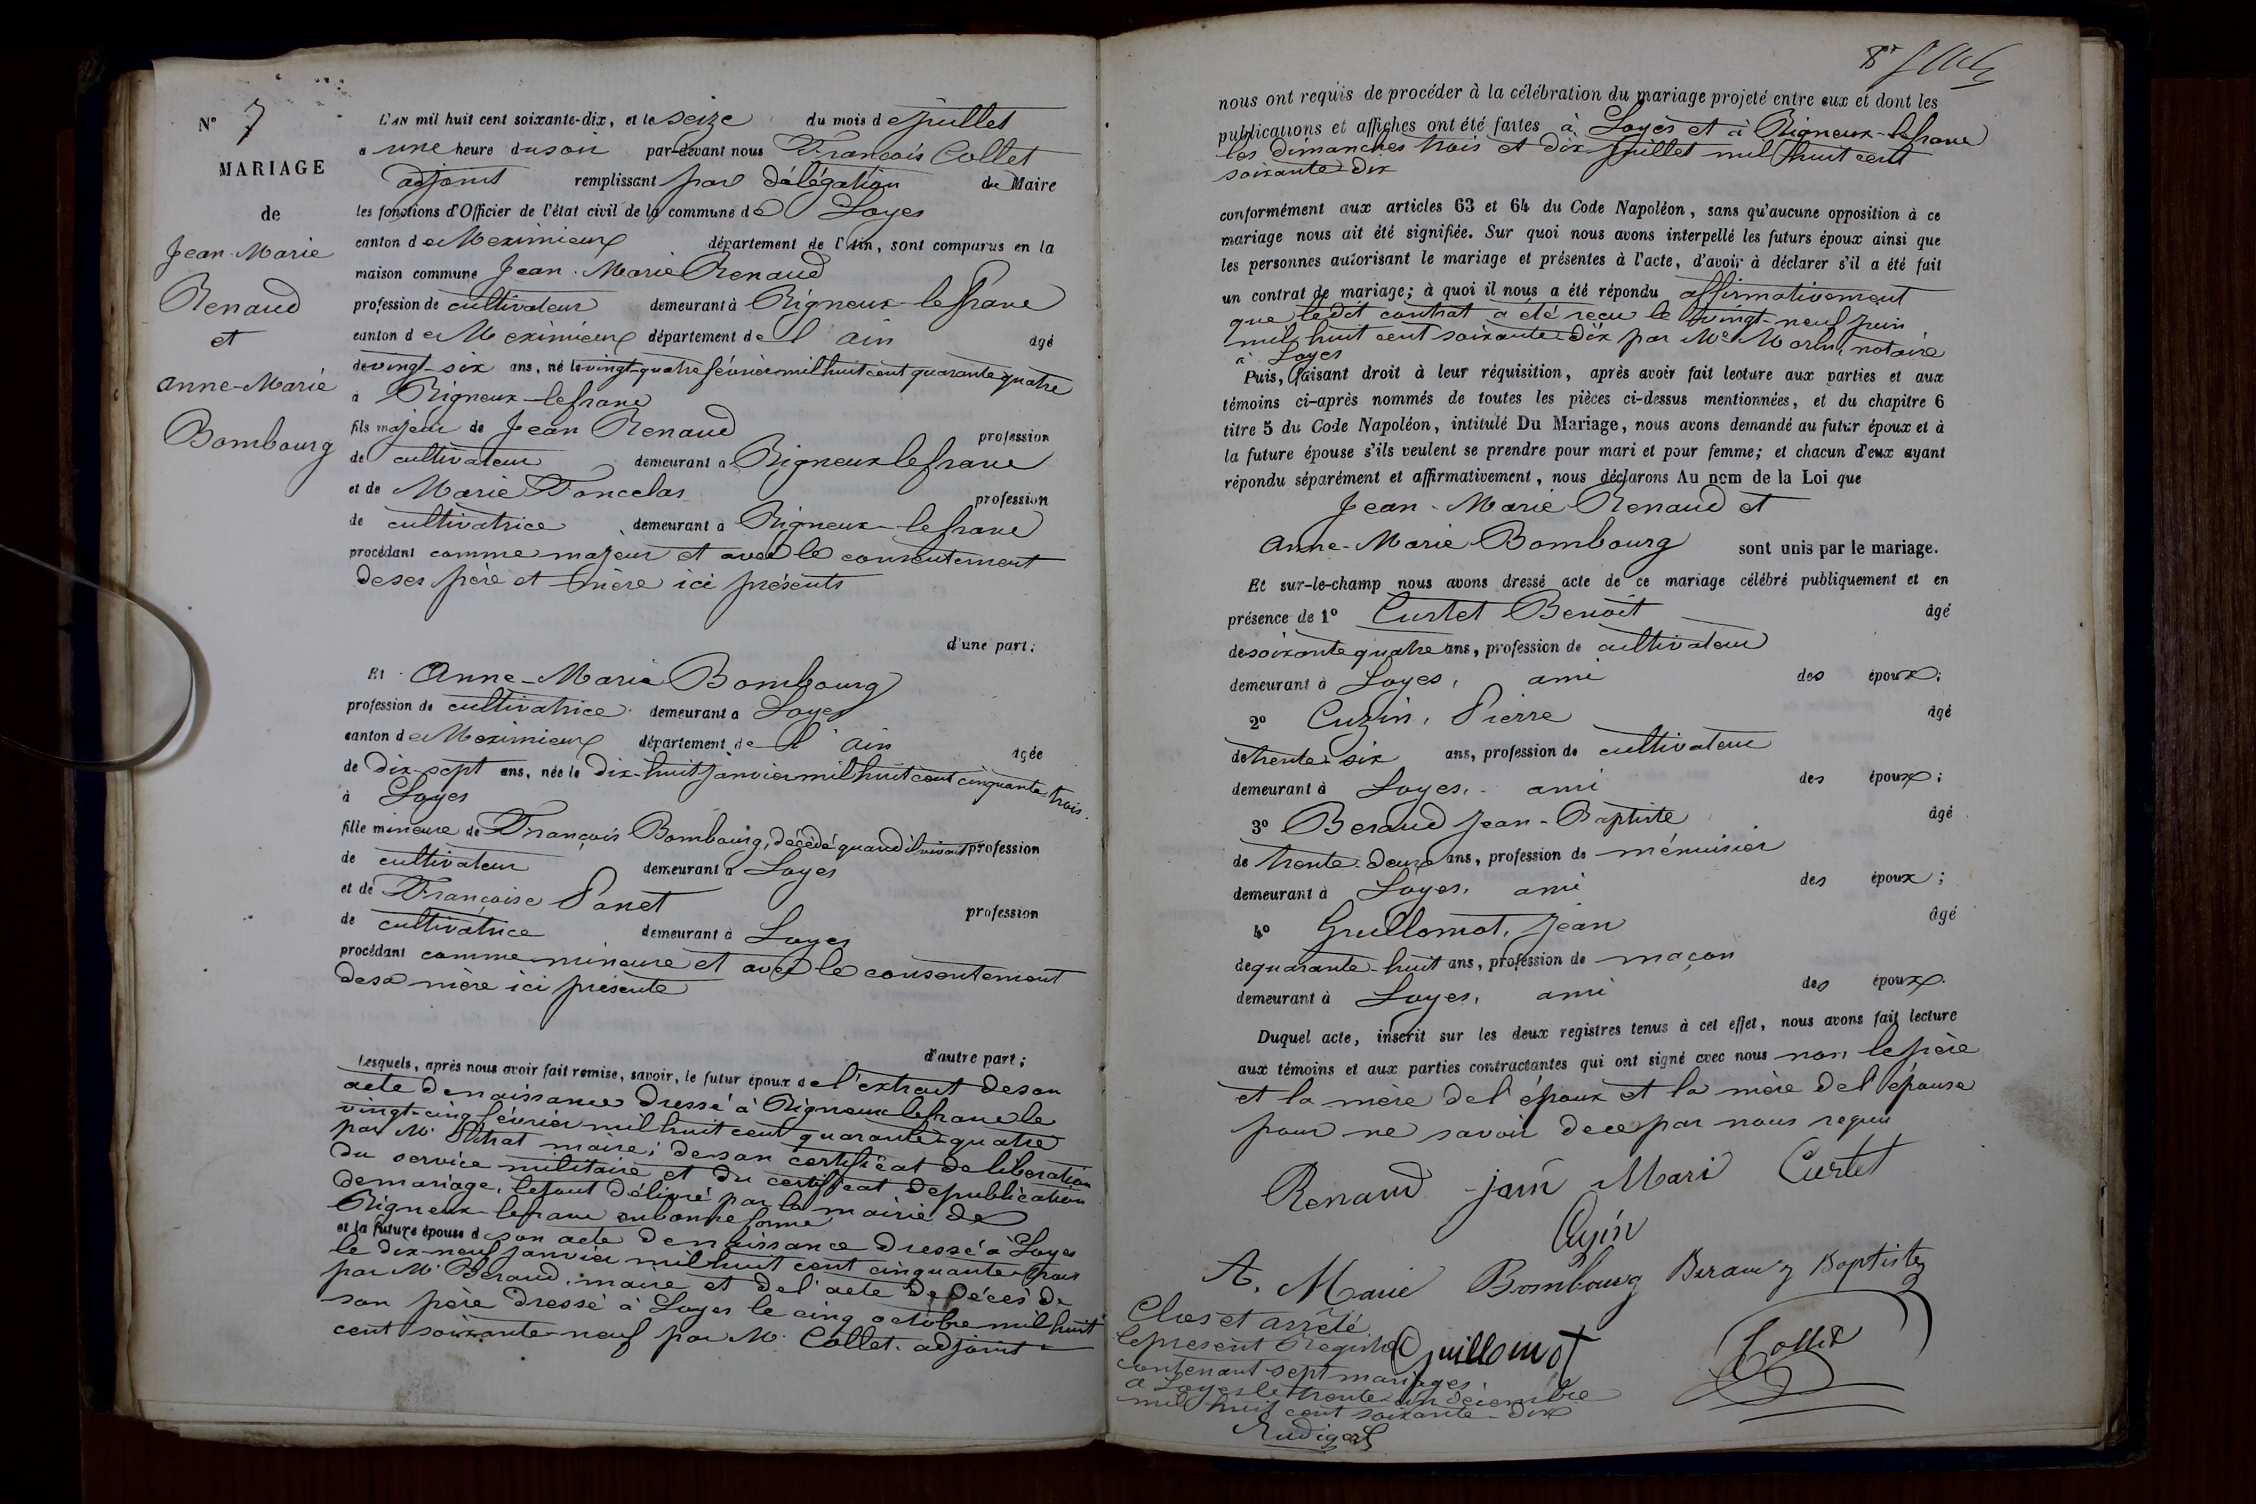 N° 7
MARIAGE
de
Jean-Marie
Renaud
et
Anne-Marie
Bombourg
L'AN mil huit cent soixante-dix, et le seize du mois de juillet
a une heure du soir par-devant nous François Collet
adjoint remplissant par délégation du Maire
les fonctions d'Officier de l'état civil de la commune de Loyes
canton de Meximieux département de l'Ain, sont comparus en la
maison commune Jean-Marie Renaud
profession de cultivateur demeurant à Rigneux-lefranc
canton de Meximieux département de l'ain âgé
de vingt-six ans, né le vingt-quatre février mil huit cent quarante quatre
à Rigneux-lefranc
fils majeur de Jean Renaud profession
de cultivateur demeurant a Rigneux lefranc
et de Marie Joncelas profession
de cultivatrice demeurant a Rigneux-lefranc
procédant comme majeur et avec le consentement
de ses père et mère ici présents
d'une part;
Et Anne-Marie Bombourg
profession de cultivatrice demeurant a Loyes
canton de Meximieux département de l'ain âgée
de dix-sept ans, née le dix-huit janvier mil huit cent cinquante trois.
à Loyes
fille mineure de François Bombourg, décédé quand il vivait profession
de cultivateur demeurant a Loyes
et de Françoise Panet profession
de cultivatrice demeurant à Loyes
procédant comme mineure et avec le consentement
de sa mère ici présente
d'autre part;
Lesquels, après nous avoir fait remise, savoir, le futur époux de l'extrait de son
acte de naissance dressé à Rigneux lefranc le
vingt-cinq février mil huit cent quarante-quatre
par Mr maire; de son certificat de libération
du service militaire et du certificat de publication
de mariage, le tout délivré par la mairie de
Rigneux-lefranc en bonne forme
et la future épouse de son acte de naissance dressé à Loyes
le dix-neuf janvier mil huit cent cinquante-trois
par Mr Beraud, maire et de l'acte de décès de
son père dressé à Loyes le cinq octobre mil huit
cent soixante-neuf par Mr Collet. adjoint
8
nous ont requis de procéder à la célébration du mariage projeté entre eux et dont les
publications et affiches ont été faites à Loyes et à Rigneux-lefranc
les dimanches trois et dix juillet mil huit cent
soixante-dix
conformément aux articles 63 et 64 du Code Napoléon, sans qu'aucune opposition à ce
mariage nous ait été signifiée. Sur quoi nous avons interpellé les futurs époux ainsi que
les personnes autorisant le mariage et présentes à l'acte, d'avoir à déclarer s'il a été fait
un contrat de mariage; à quoi il nous a été répondu affirmativement
que ledit contrat a été reçu le vingt-neuf juin
mil huit cent soixante-dix par Me Morin, notaire
à Loyes
Puis, faisant droit à leur réquisition, après avoir fait lecture aux parties et aux
témoins ci-après nommés de toutes les pièces ci-dessus mentionnées, et du chapitre 6
titre 5 du Code Napoléon, intitulé Du Mariage, nous avons demandé au futur époux et à
la future épouse s'ils veulent se prendre pour mari et pour femme; et chacun d'eux ayant
répondu séparément et affirmativement, nous déclarons Au nom de la Loi que
Jean-Marie Renaud et
Anne-Marie Bombourg sont unis par le mariage.
Et sur-le-champ nous avons dressé acte de ce mariage célébré publiquement et en
présence de 1° Curtet Benoit âgé
de soixante quatre ans, profession de cultivateur
demeurant à Loyes, ami des époux;
2° Cuzin, Pierre âgé
de trente-six ans, profession de cultivateur
demeurant à Loyes, ami des époux;
3° Beraud Jean-Baptiste âgé
de trente-deux ans, profession de menuisier
demeurant à Loyes, ami des époux;
4° Guillomot, Jean âgé
de quarante-huit ans, profession de maçon
demeurant à Loyes, ami des époux.
Duquel acte, inscrit sur les deux registres tenus à cet effet, nous avons fait lecture
aux témoins et aux parties contractantes qui ont signé avec nous non, le père
et la mère de l'époux et la mère de l'épouse
pour ne savoir de ce par nous requis
Renaud jain Mari Curtet
Cuzin
A. Marie Bombourg Beraud Baptiste
Clos et arrêté
le présent Registre Guillomot Collet
contenant sept mariages
à Loyes le trente-un décembre
mil huit cent soixante-dix
Rudigoz